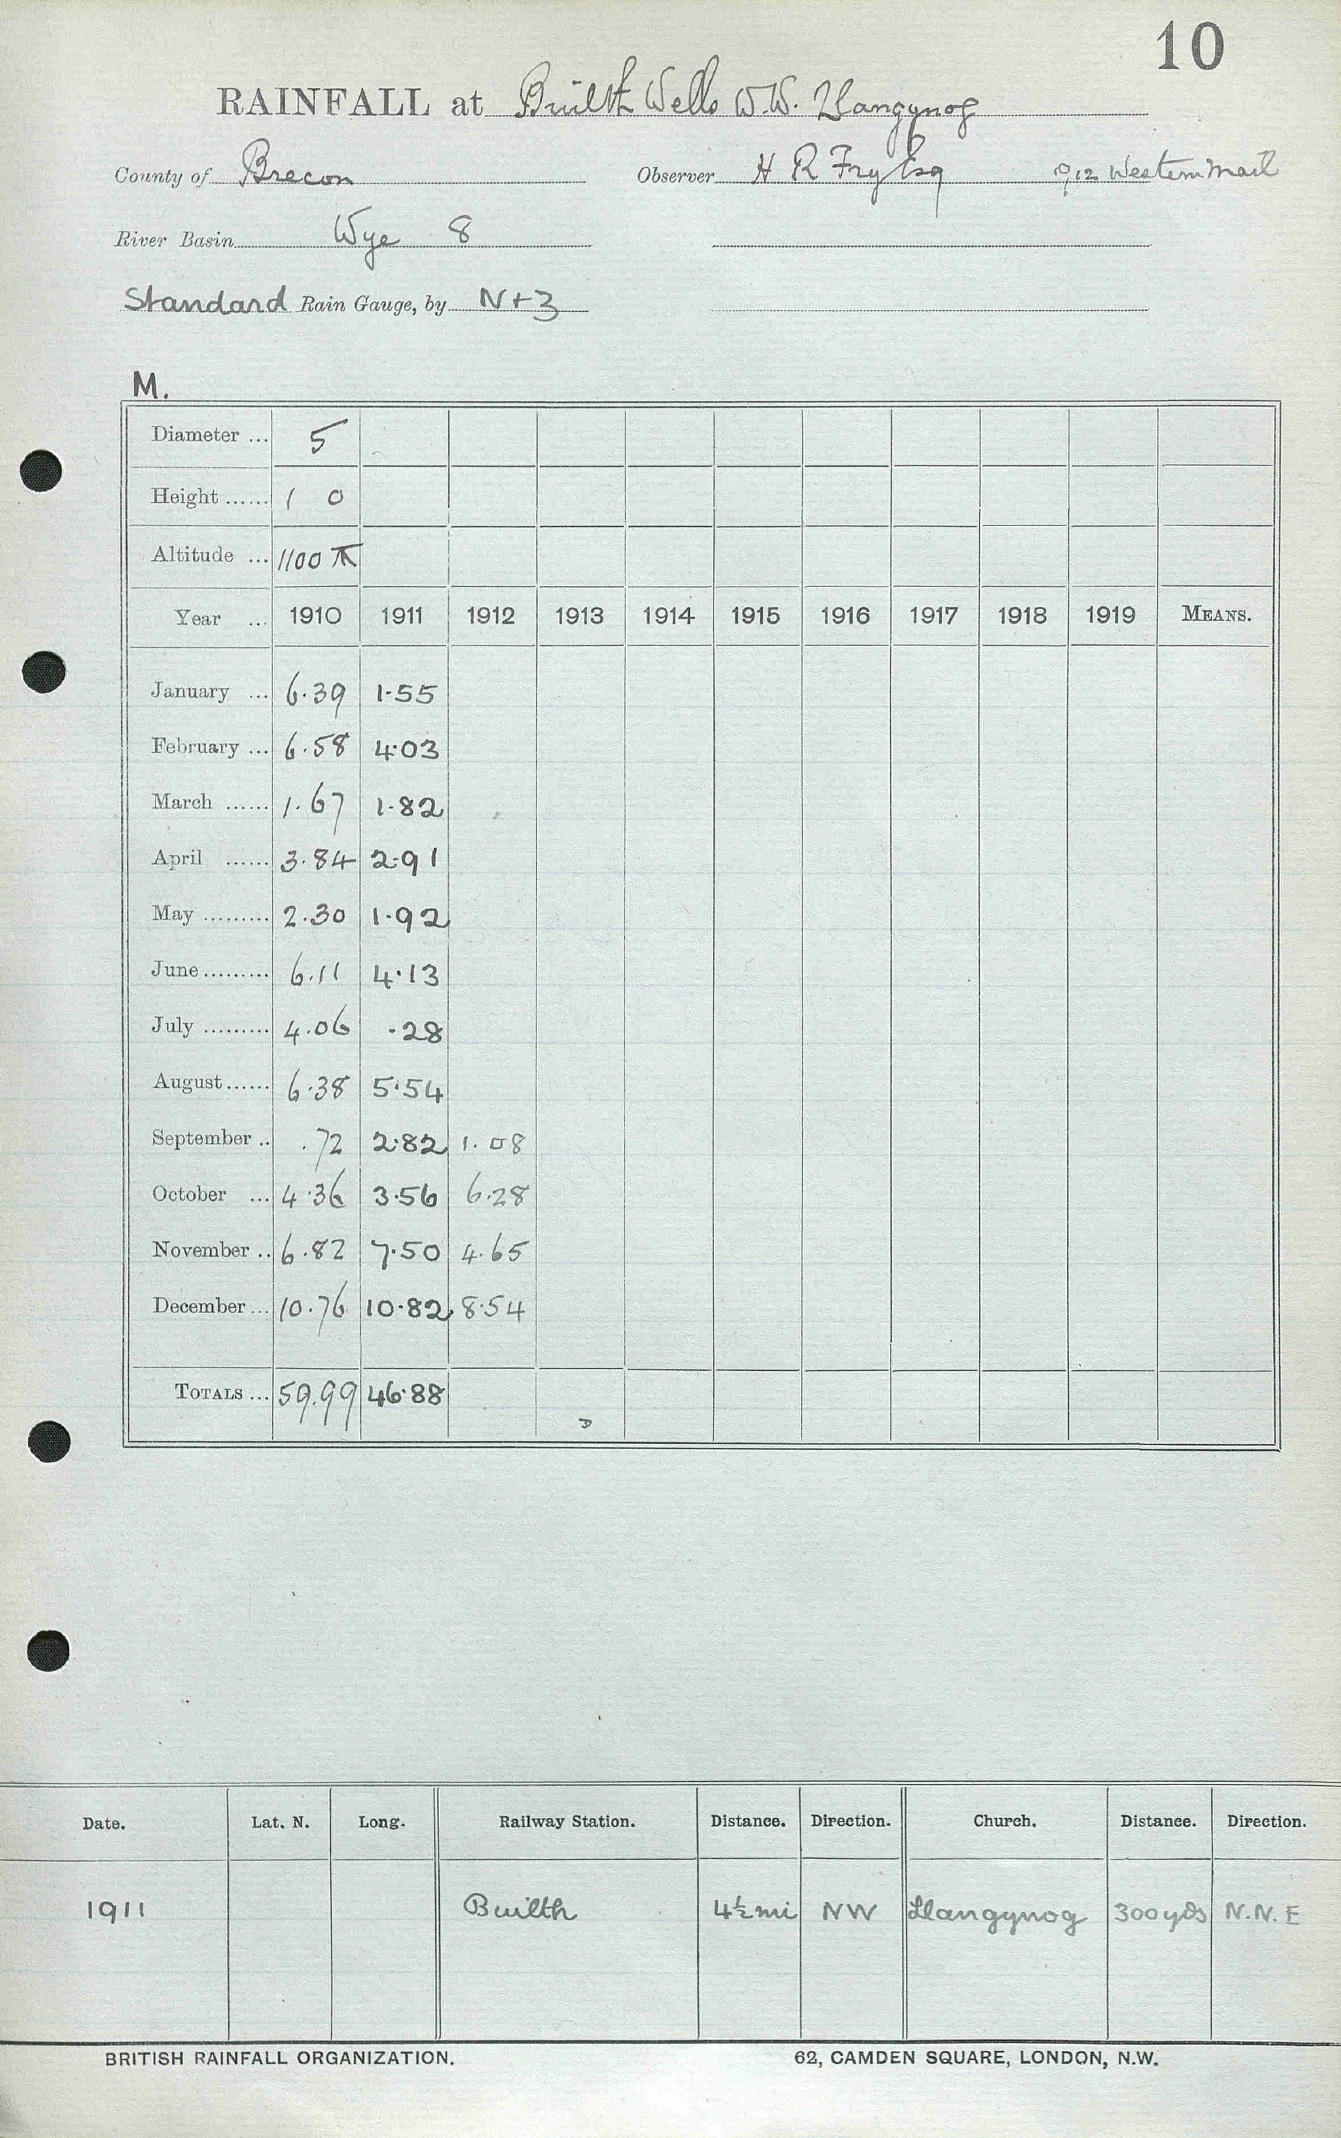 10
RAINFALL at Builth Wells W.W. Llangynog
County of Brecon Observer H R Fry Esq 1912 Western Mail
River Basin Wye 8
Standard Rain Gauge, by N+Z
M.
Diameter ... 5
Height ...... 1 0
Altitude ... 1100
Year ... 1910 1911 1912 1913 1914 1915 1916 1917 1918 1919 MEANS.
January ... 6.39 1.55
February ... 6.58 4.03
March ...... 1.67 1.82
April ...... 3.84 2.91
May ......... 2.30 1.92
June ......... 6.11 4.13
July ......... 4.06 .28
August ...... 6.38 5.54
September .. .72 2.82 1.08
October ... 4.36 3.56 6.28
November .. 6.82 7.50 4.65
December ... 10.76 10.82 8.54
TOTALS ... 59.99 46.88
Date. Lat. N. Long. Railway Station. Distance. Direction. Church. Distance. Direction.
1911 Builth 4½ mi NW Llangynog 300 yds N.N.E
BRITISH RAINFALL ORGANIZATION. 62, CAMDEN SQUARE, LONDON, N.W.